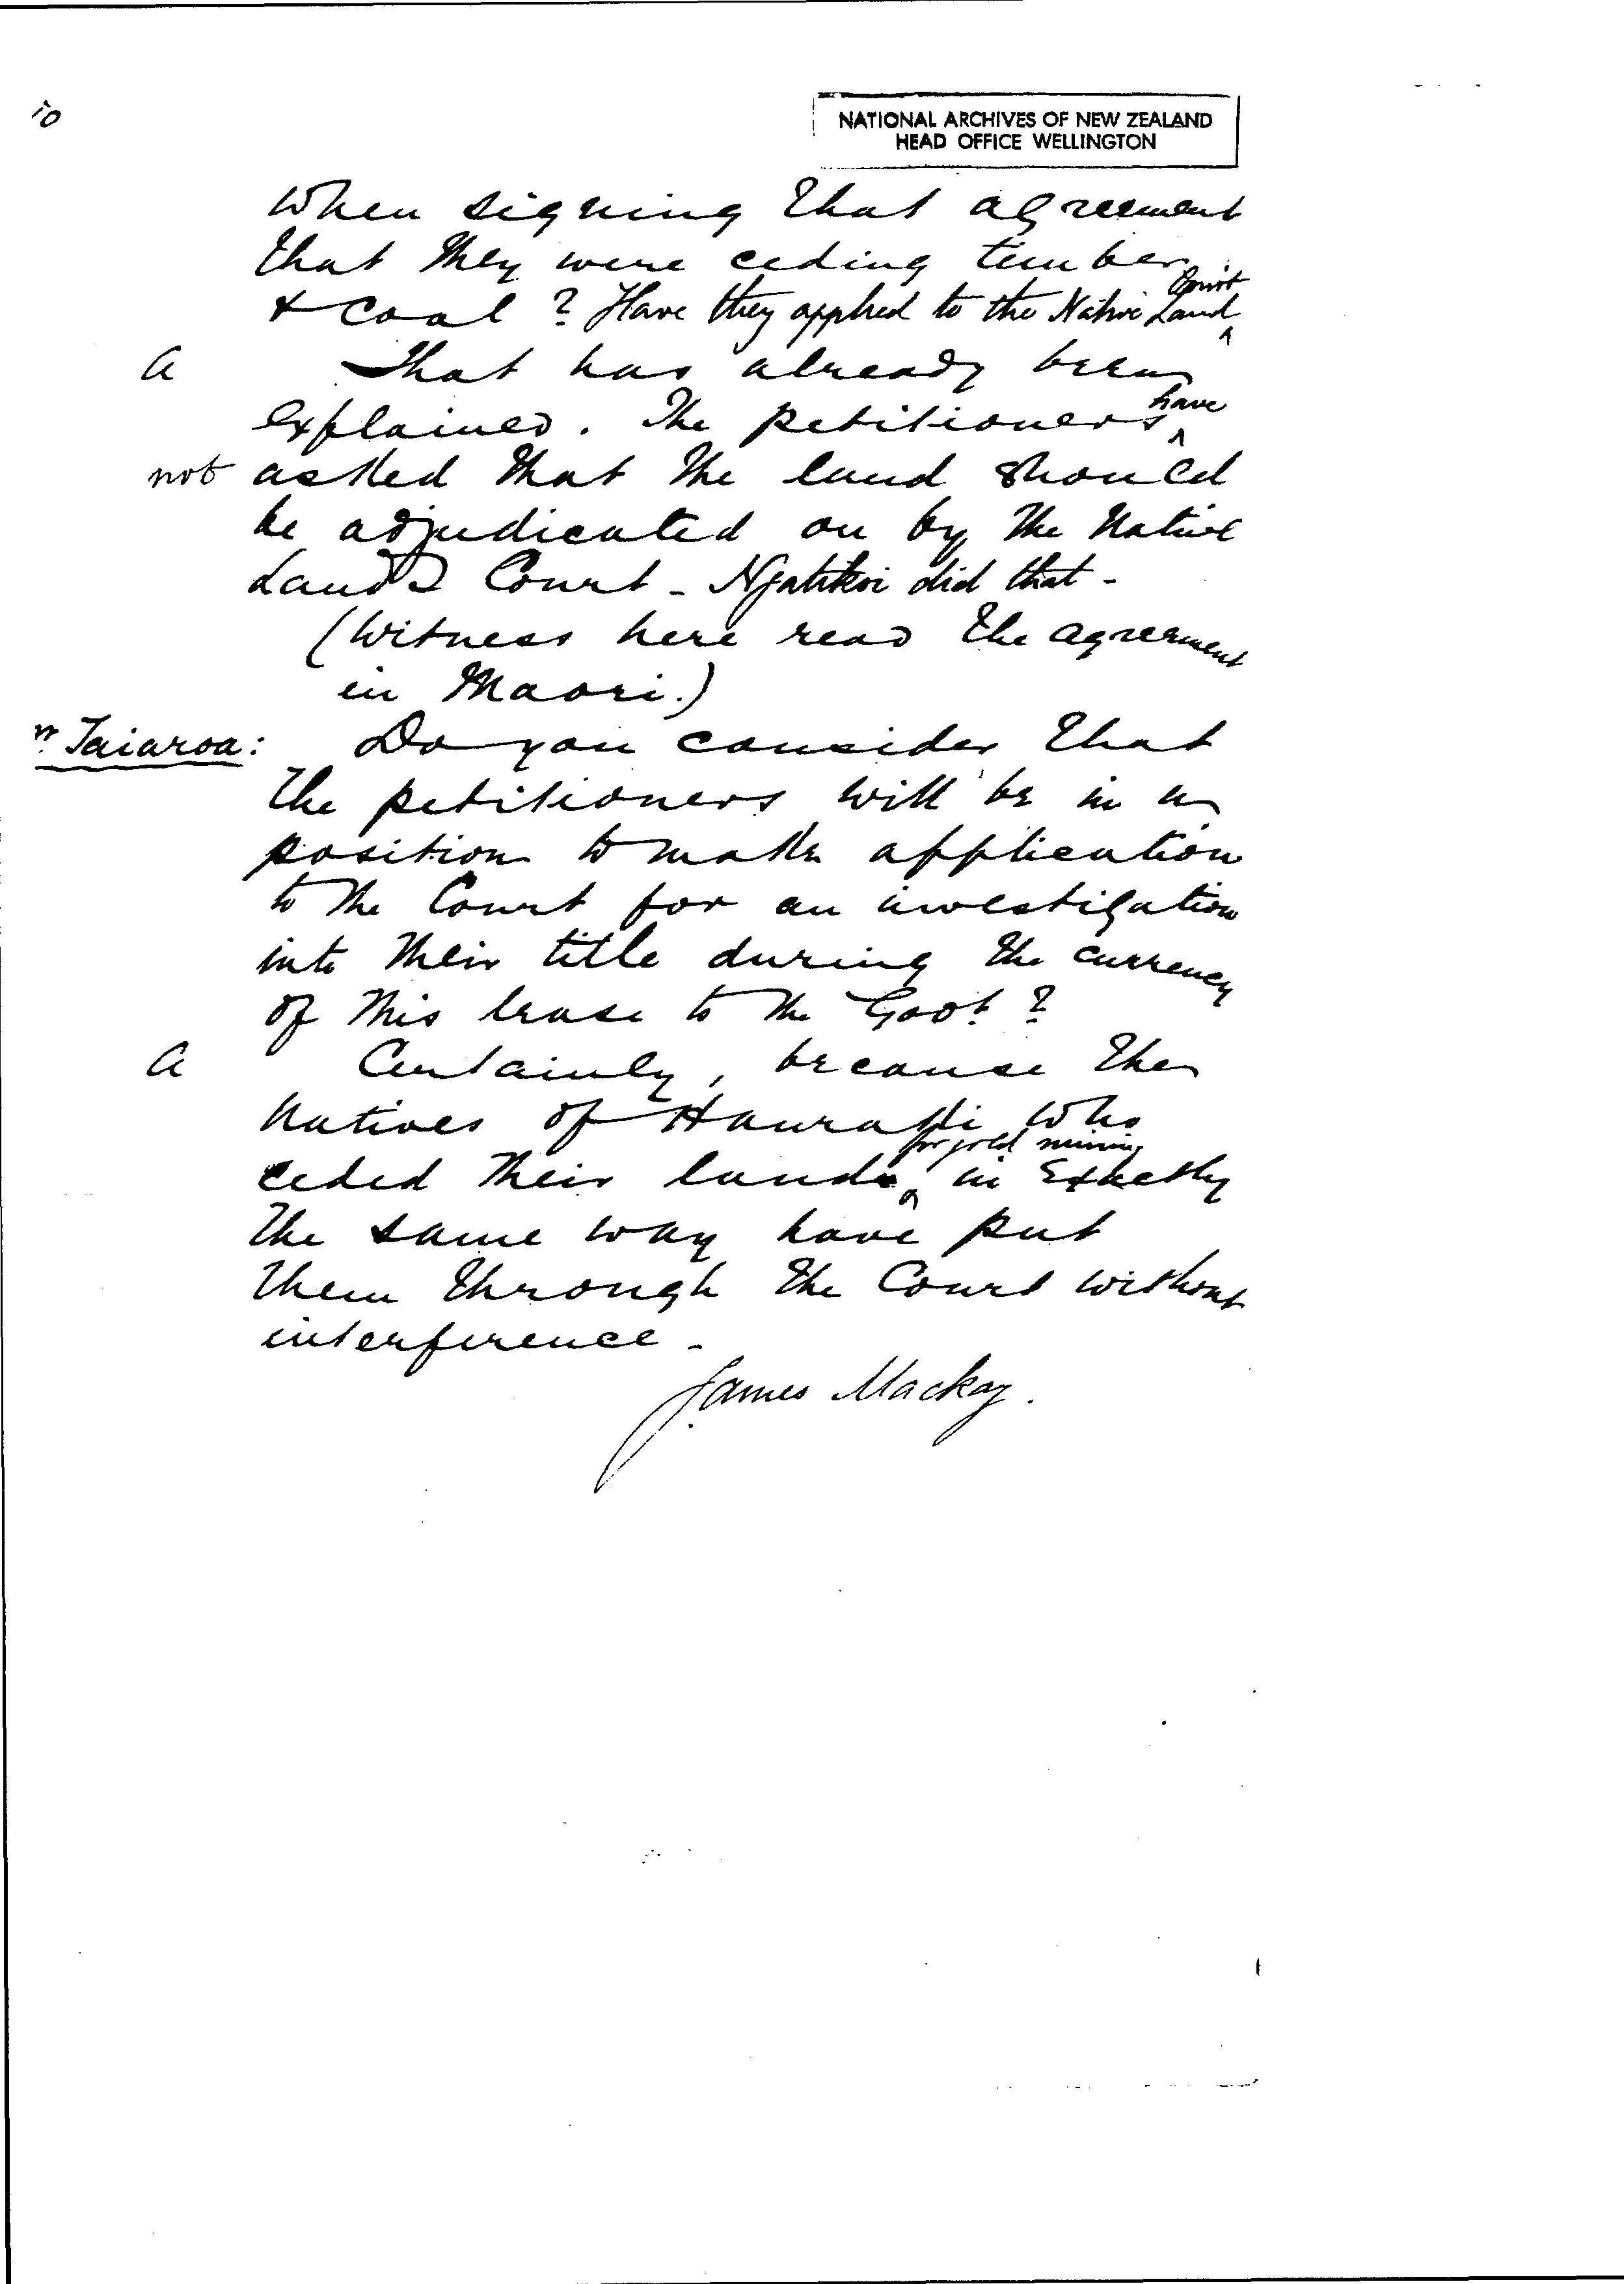 10
NATIONAL ARCHIVES OF NEW ZEALAND
HEAD OFFICE WELLINGTON
When signing that agreement
that they were ceding timber
& coal? Have they applied to the Native Land Court
a That has already been
explained. The petitioners have
not asked that the land should
be adjudicated on by the Native
Lands Court - Ngatikoi did that -
(Witness here read the agreement
in Maori.)
Mr Taiaroa: Do you consider that
the petitioners will be in a
position to make application
to the Court for an investigation
into their title during the currency
of this lease to the Govt?
a Certainly, because the
Natives of Hauraki who
ceded their lands for gold mining in Exactly
the same way have put
them through the Court without
interference -
James Mackay.